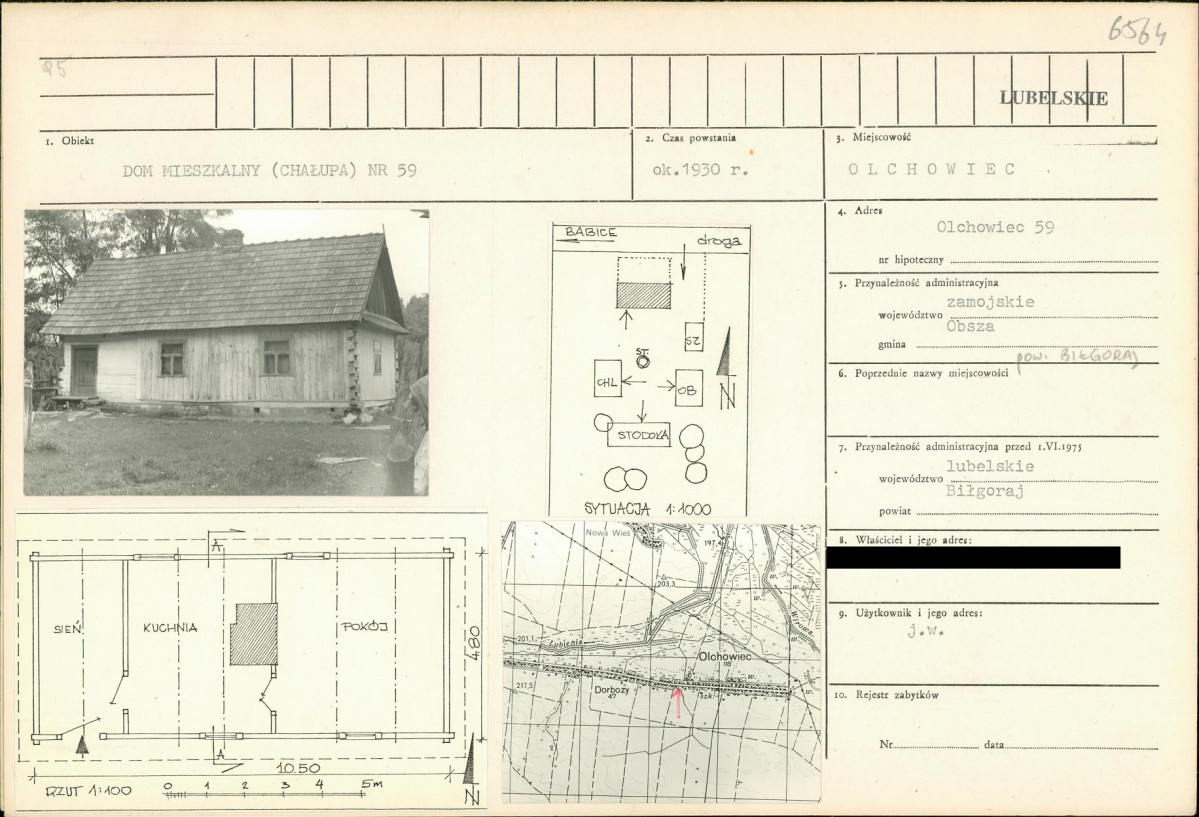 6564
95
LUBELSKIE
1. Obiekt
DOM MIESZKALNY (CHAŁUPA) NR 59
2. Czas powstania
ok.1930 r.
3. Miejscowość
OLCHOWIEC
4. Adres
Olchowiec 59
nr hipoteczny
5. Przynależność administracyjna
zamojskie
województwo
Obsza
gmina
pow. BIŁGORAJ
6. Poprzednie nazwy miejscowości
7. Przynależność administracyjna przed 1.VI.1975
lubelskie
województwo
Biłgoraj
powiat
8. Właściciel i jego adres:
9. Użytkownik i jego adres:
j.w.
10. Rejestr zabytków
Nr data
BABICE
droga
SZ
ST.
CHL
OB
N
STODOŁA
SYTUACJA 1:1000
A
SIEŃ
KUCHNIA
POKÓJ
4.80
A
10.50
RZUT 1:100
0 1 2 3 4 5m
N
Nowa Wieś
197,4
203,3
w.
w.
w.
Wirowa
201,1
Łubienia
Olchowiec
118
w.
w.
217,5
Dorbozy
47
szk.